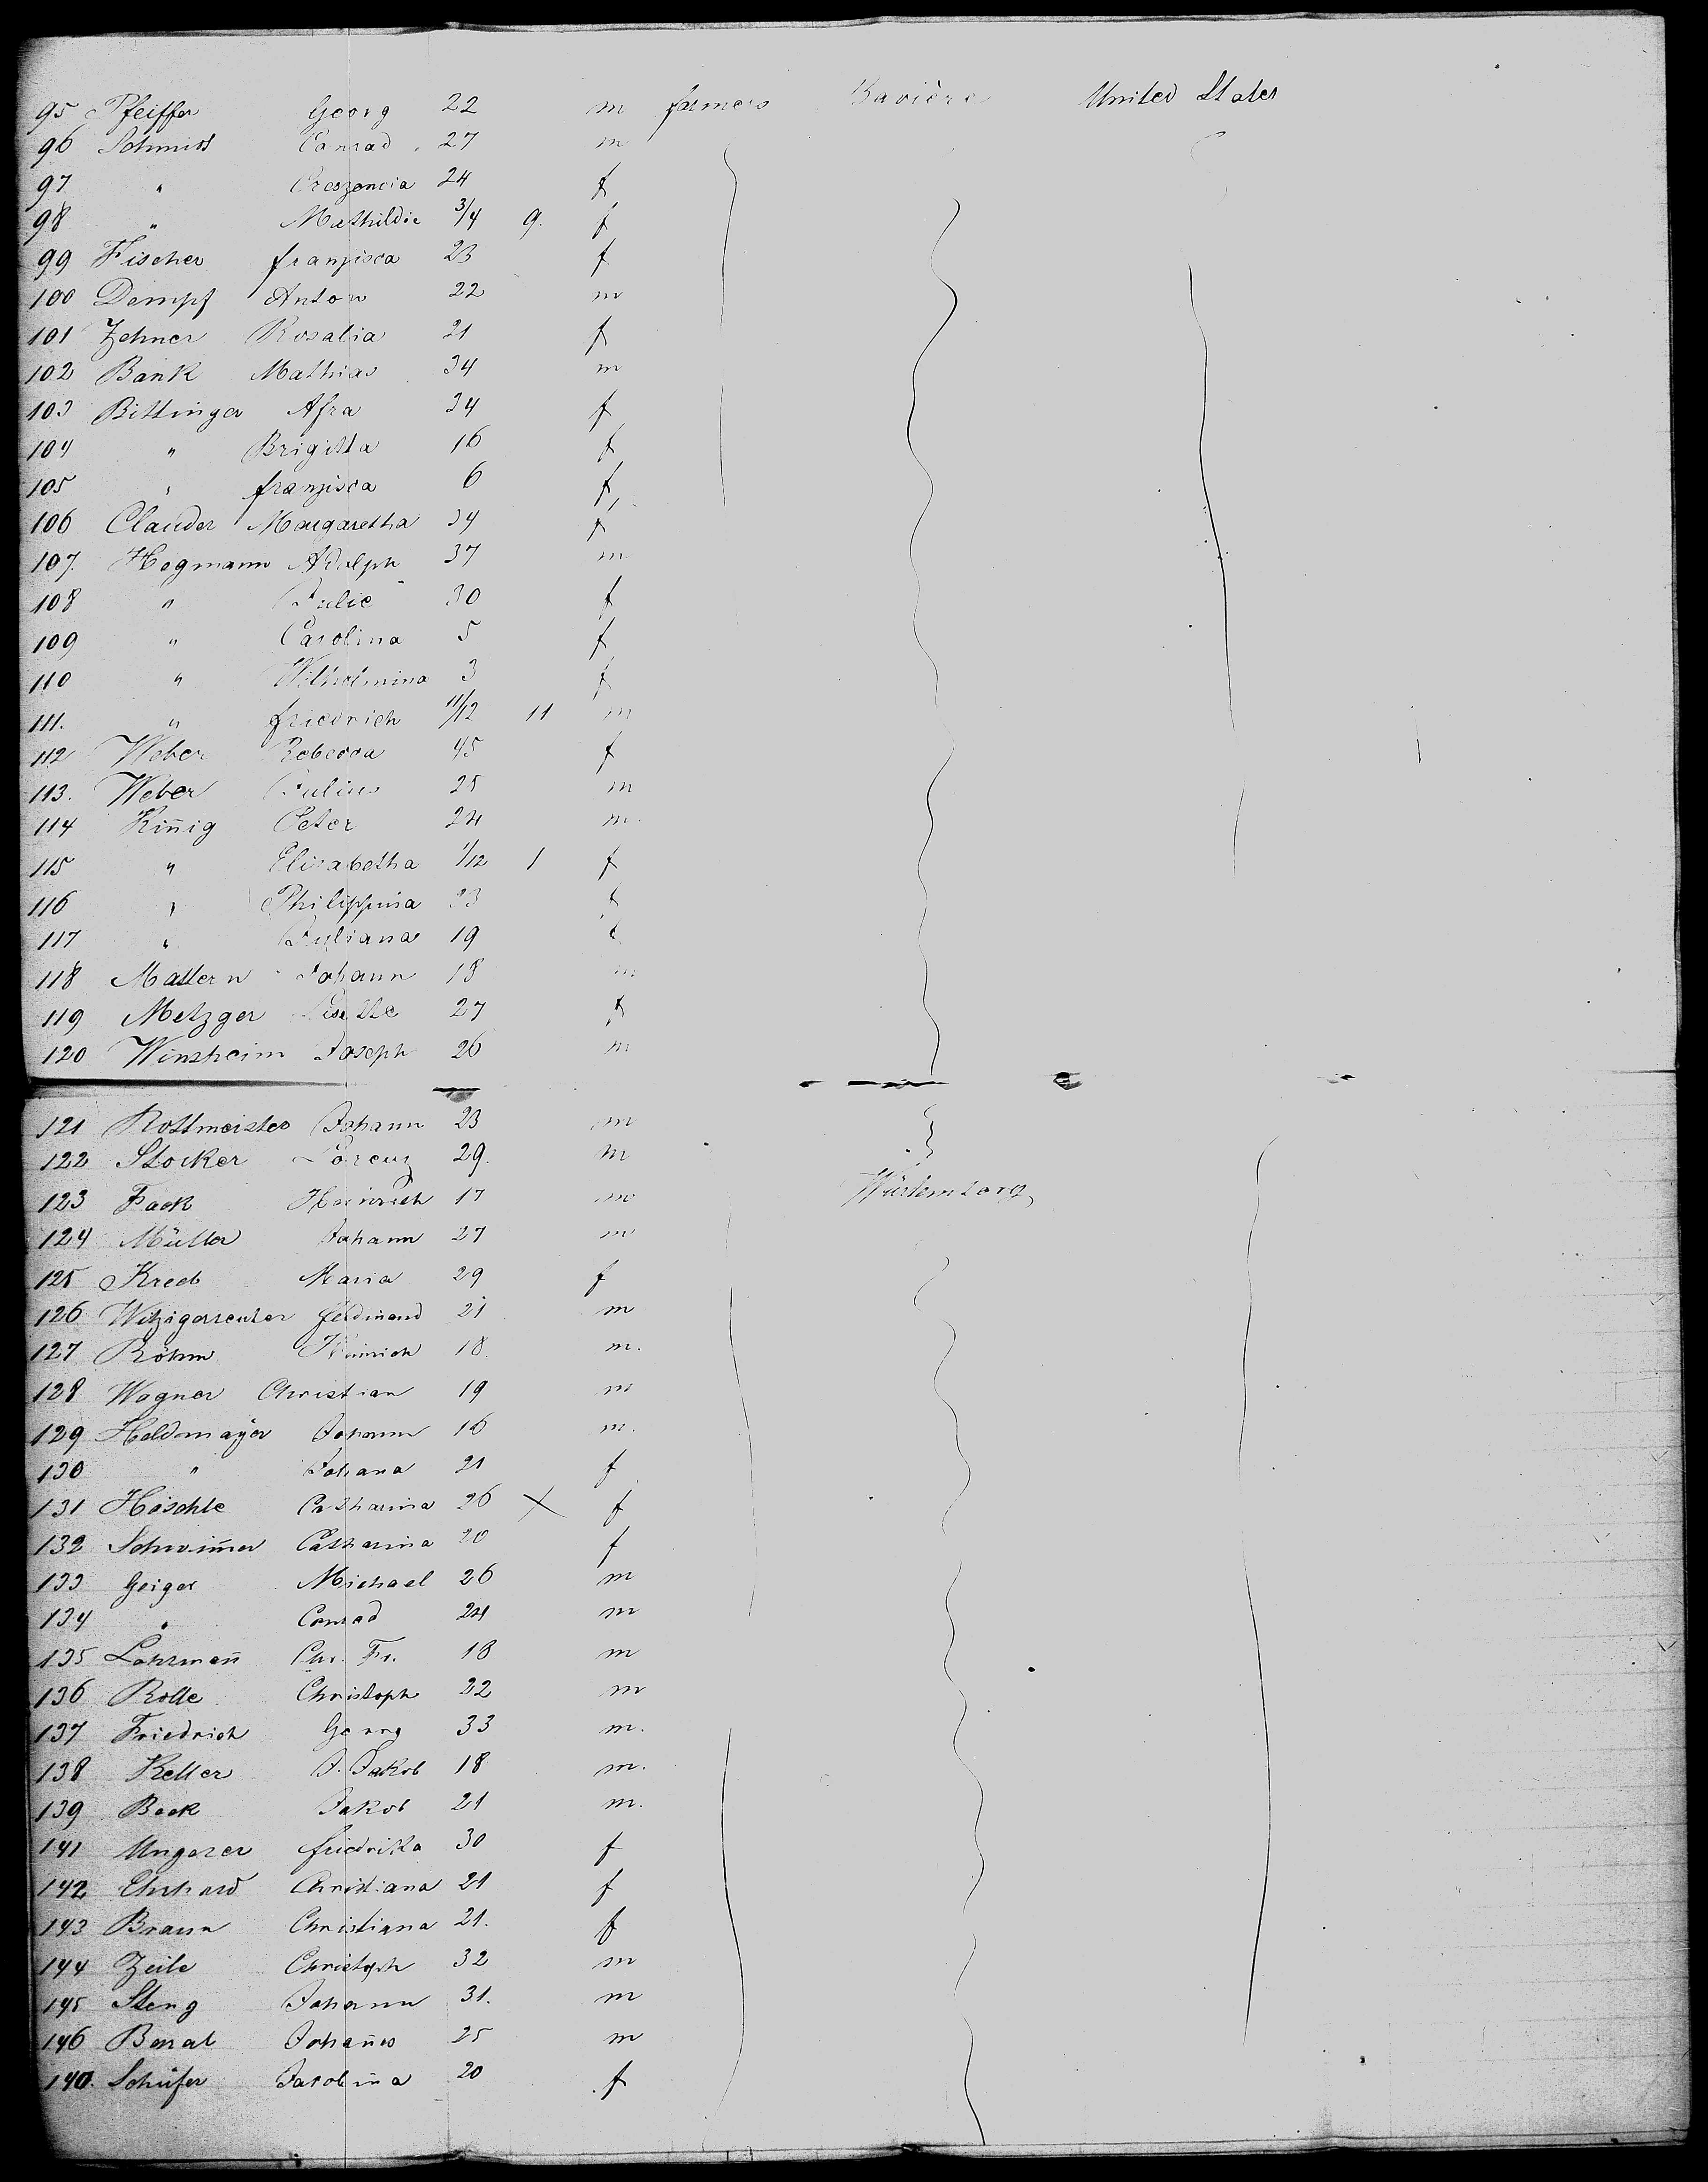 95 Pfeiffer Georg 22 m farmers Bavière United States
96 Schmitt Conrad 27 m
97 " Creszencia 24 f
98 " Mathildie 3/4 9. f
99 Fischer franzisca 23 f
100 Dempf Anton 22 m
101 Zehner Rosalia 21 f
102 Bank Mathias 34 m
103 Bittinger Afra 34 f
104 " Brigitta 16 f
105 " franzisca 6 f
106 Clauder Margaretha 34 f
107. Hegmann Adolph 37 m
108 " Julie 30 f
109 " Carolina 5 f
110 " Wilhelmina 3 f
111. " friedrich 11/12 11 m
112 Weber Rebecca 45 f
113. Weber Julius 25 m
114 Kin̄ig Peter 24 m.
115 " Elisabetha 1/12 1 f
116 " Philippina 23 f
117 " Juliana 19 f
118 Mattern Johann 18 m
119 Metzger Lisette 27 f
120 Winsheim Joseph 26 m
121 Rottmeister Johann 23 m
122 Stocker Lorenz 29. m
123 Fack Heinrich 17 m Würtemberg
124 Müller Johann 27 m
125 Kreeb Maria 29 f
126 Witzigerreuter ferdinand 21 m
127 Röhm Heinrich 18. m.
128 Wagner Christian 19 m
129 Heldmayer Johann 16 m.
130 " Johana 21 f
131 Höschle Catharina 26 X f
132 Schwim̄er Catharina 20 f
133 Geiger Michael 26 m
134 " Conrad 24 m
135 Lohrman̄ Chr. Fr. 18 m
136 Rolle Christoph 22 m
137 Friedrich Georg 33 m.
138 Keller J. Jakob 18 m.
139 Beck Jakob 21 m.
141 Ungerer friedrika 30 f
142 Ehrhard Christiana 21 f
143 Braun Christiana 21. f
144 Zeile Christoph 32 m
145 Steng Johann 31. m
146 Johan̄es 25 m
140. Schäfer Jacobina 20 f